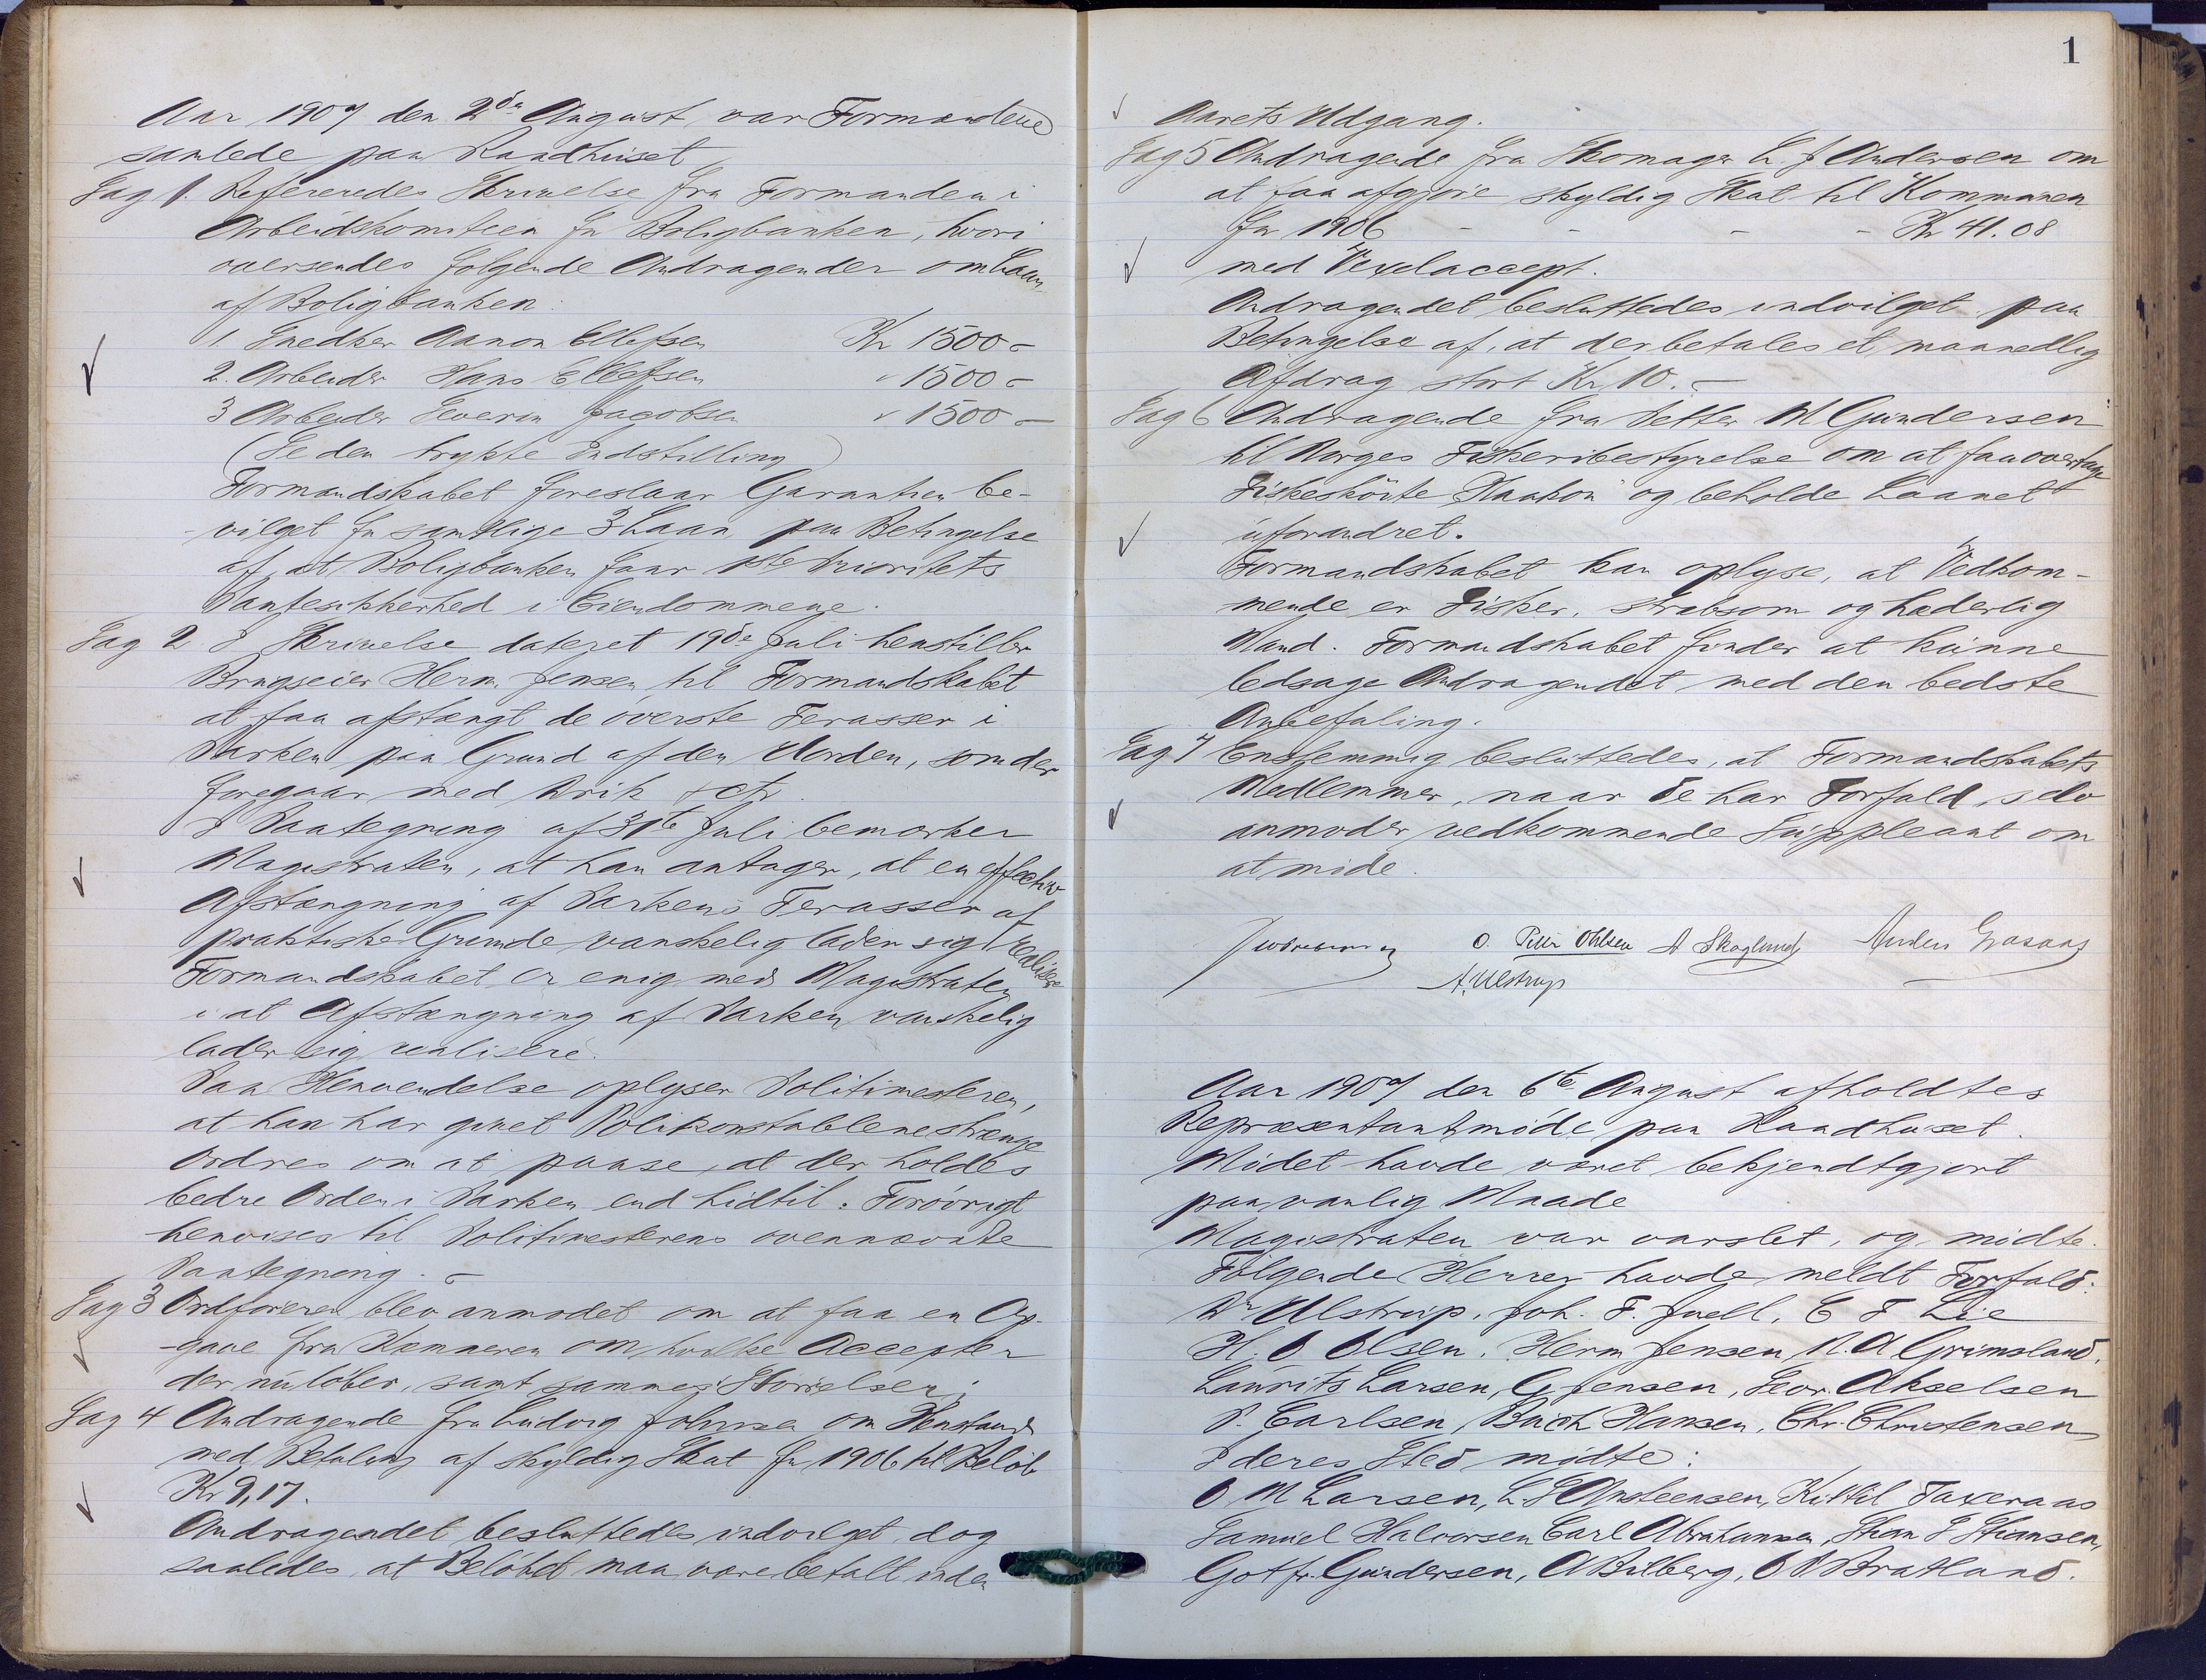 Aar 1907 den 2den August var Formændene
samlede paa Raadhuset
Sag 1. Refereredes Skrivelse fra Formanden i
Arbeidskomiteen for Boligbanken, hvori
oversendes følgende Andragender om Laan
af Boligbanken:
1 Snedker Aanon Ellefsen Kr 1500 -
2. Arbeider Hans Ellefsen " 1500 -
3 Arbeider Severin Jacobsen " 1500 -
(Se den trykte Indstilling)
Formandskabet foreslaar Garantien be-
vilget for samtlige 3 Laan paa Betingelse
af, at Boligbanken faar 1ste Prioritets
Pantesikkerhed i Eiendommene.
Sag 2 I Skrivelse dateret 19de Juli henstiller
Brugseier Herm. Jensen til Formandskabet
at faa afstængt de øverste Terasser i
Parken paa Grund af den Uorden, som der
foregaar med Drik etc.
I Paategning af 31te Juli bemærker
Magistraten, at han antager, at en effectiv
Afstængning af Parkens Terasser af
praktiske Grunde vanskelig lader sig realisere
Formandskabet er enig med Magistraten
i at Afstængning af Parken vanskelig
lader sig realisere.
Paa Henvendelse oplyser Politimesteren,
at han har givet Politikonstablene strænge
Ordres om at paase, at der holdes
bedre Orden i Parken end hidtil. Forøvrigt
henvises til Politimesterens ovennævnte
Paategning. -
Sag 3 Ordføreren blev anmodet om at faa en Op-
-gave fra Kæmneren om hvilke Accepter
der nu løber, samt sammes Størrelser;
Sag 4 Andragende fra Ludvig Johnsen om Henstand
med Betaling af skyldig Skat for 1906 til Beløb
Kr 9,17.
Andragendet besluttedes indvilget, dog
saaledes, at Beløbet maa være betalt inden
1
Aarets Udgang.
Sag 5 Andragende fra Skomager L. J Andersen om
at faa afgjøre skyldig Skat til Kommunen
for 1906 - - - - Kr 41.08
med Vexelaccept.
Andragendet besluttedes indvilget paa
Betingelse af, at der betales et maanedlig
Afdrag stort Kr 10. -
Sag 6 Andragende fra Petter M Gundersen
til Norges Fiskeribestyrelse om at faa overtage
Fiskeskøite "Haakon" og beholde Laanet
uforandret.
Formandskabet kan oplyse, at Vedkom-
mende er Fisker, stræbsom og hæderlig
Mand. Formandskabet finder at kunne
ledsage Andragendet med den bedste
Anbefaling.
Sag 7 Enstemmig besluttedes, at Formandskabets
Medlemmer, naar de har Forfald, selv
anmoder vedkommende Suppleant om
at møde.
O. Peter Ohlsen A Skoglund Anders Grasaas
A. Ulstrup
Aar 1907 den 6te August afholdtes
Repræsentantmøde paa Raadhuset.
Mødet havde været bekjendtgjort
paa vanlig Maade
Magistraten var varslet, og mødte.
Følgende Herrer havde meldt Forfald:
Dr Ulstrup, Joh. F. Juell, C F Lie
H. O Olsen, Herm Jensen, N. A Grimsland,
Laurits Larsen, G Jensen, Sevr. Akselsen
P. Carlsen, Buch Hansen, Chr. Christensen
I deres Sted mødte:
O M Larsen, L. S Ansteensen, Kittil Taxeraas
Samuel Halvorsen Carl Abrahamsen, Stian S Stiansen,
Gotfr. Gundersen, A Bilberg, O P Bratland.